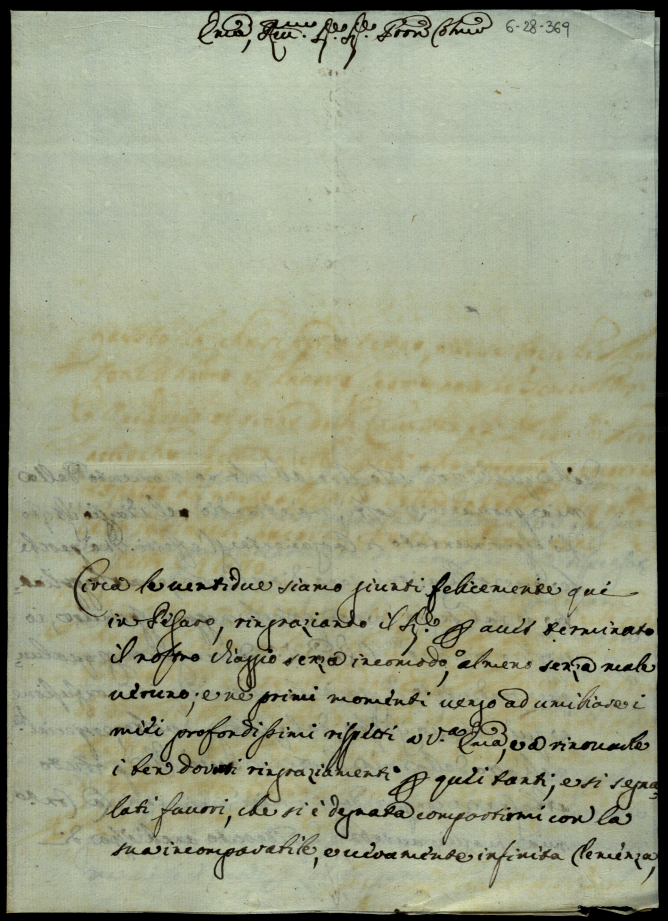 Em.ᵃ, Rev.ᵐᵃ Sig.ʳ Sig.ʳ Pron Colmo 6-28-369
Circa le ventidue siamo giunti felicemente quì
in Pesaro, ringraziando il Sig.ʳᵉ p avér terminato
il nostro viaggio senza incomodo, o almeno senza male
veruno; e ne primi momenti vengo ad umiliare i
miei profondissimi rispetti a V.ᵃ Em̃a, e a rinovarle
i ben dovuti ringraziamenti p quei tanti, e sì segna-
lati favori, che si è degnata compartirmi con la
sua incomparabile, e veramente infinita Clemenza,